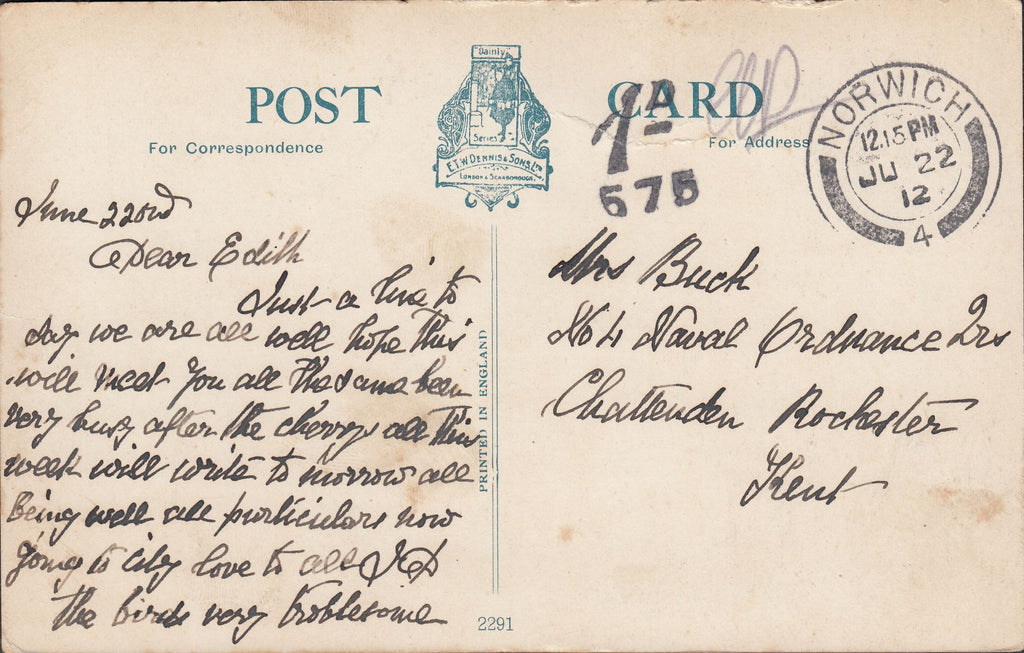 POST CARD
For Correspondence
For Address
Dainty
Series
E.T.W. DENNIS & SONS, LTD
LONDON & SCARBOROUGH.
1D
575
NORWICH
12.15 PM
JU 22
12
4
June 22nd
Dear Edith
Just a line to
say we are all well hope this
will meet you all the same been
very busy after the cherrys all this
week will write to morrow all
being well all particulars now
going to city love to all
the birds very troblesome
PRINTED IN ENGLAND
2291
Mrs Buck
No 4 Naval Ordnance Qrs
Chattenden Rochester
Kent